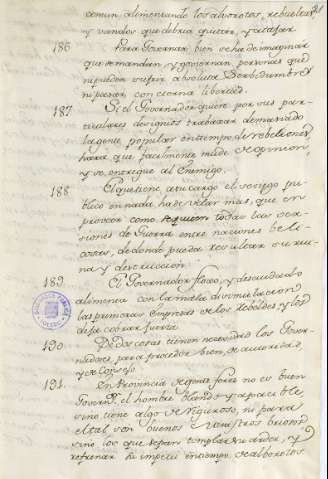 comun alimentando los alborotos, rebueltas
y vandos que debria quitar, y atajar
186 Para Governar bien se ha de imaginar
que se mandan, y goviernan personas que
ni pueden sufrir absoluta Serbidumbre,
ni pasar con eterna libertad
187 Si el Governador quiere por sus par-
ticulares designios trabaxar demasiado
la gente popular en tiempo de rebeliones
hara que facilmente mude de opinion,
y se entregue al Enemigo.
188 El que tiene a su cargo el sosiego pu-
blico en nada ha de velar mas, que en
procurar como se quiten todas las oca-
siones de Guerra entre naciones beli-
cosas, de donde pueda resultar su rui-
na y destruicion
189 El Governador floxo, y descuidado
alimenta con la mucha disimulacion
las primeras Empresas de los Rebeldes, y los
dexa cobrar fuerza
190 De dos cosas tienen necesidad los Gover-
nadores, para proceder bien, de autoridad,
y de Consejo
191 En Provincia de gente feroz no es buen
Govern.r el hombre blando, y apacible,
sino tiene algo de riguroso, ni para
el tal son buenos
sino los que sepan templar su ardor, y
refrenar su impetu en tiempo de alborotos